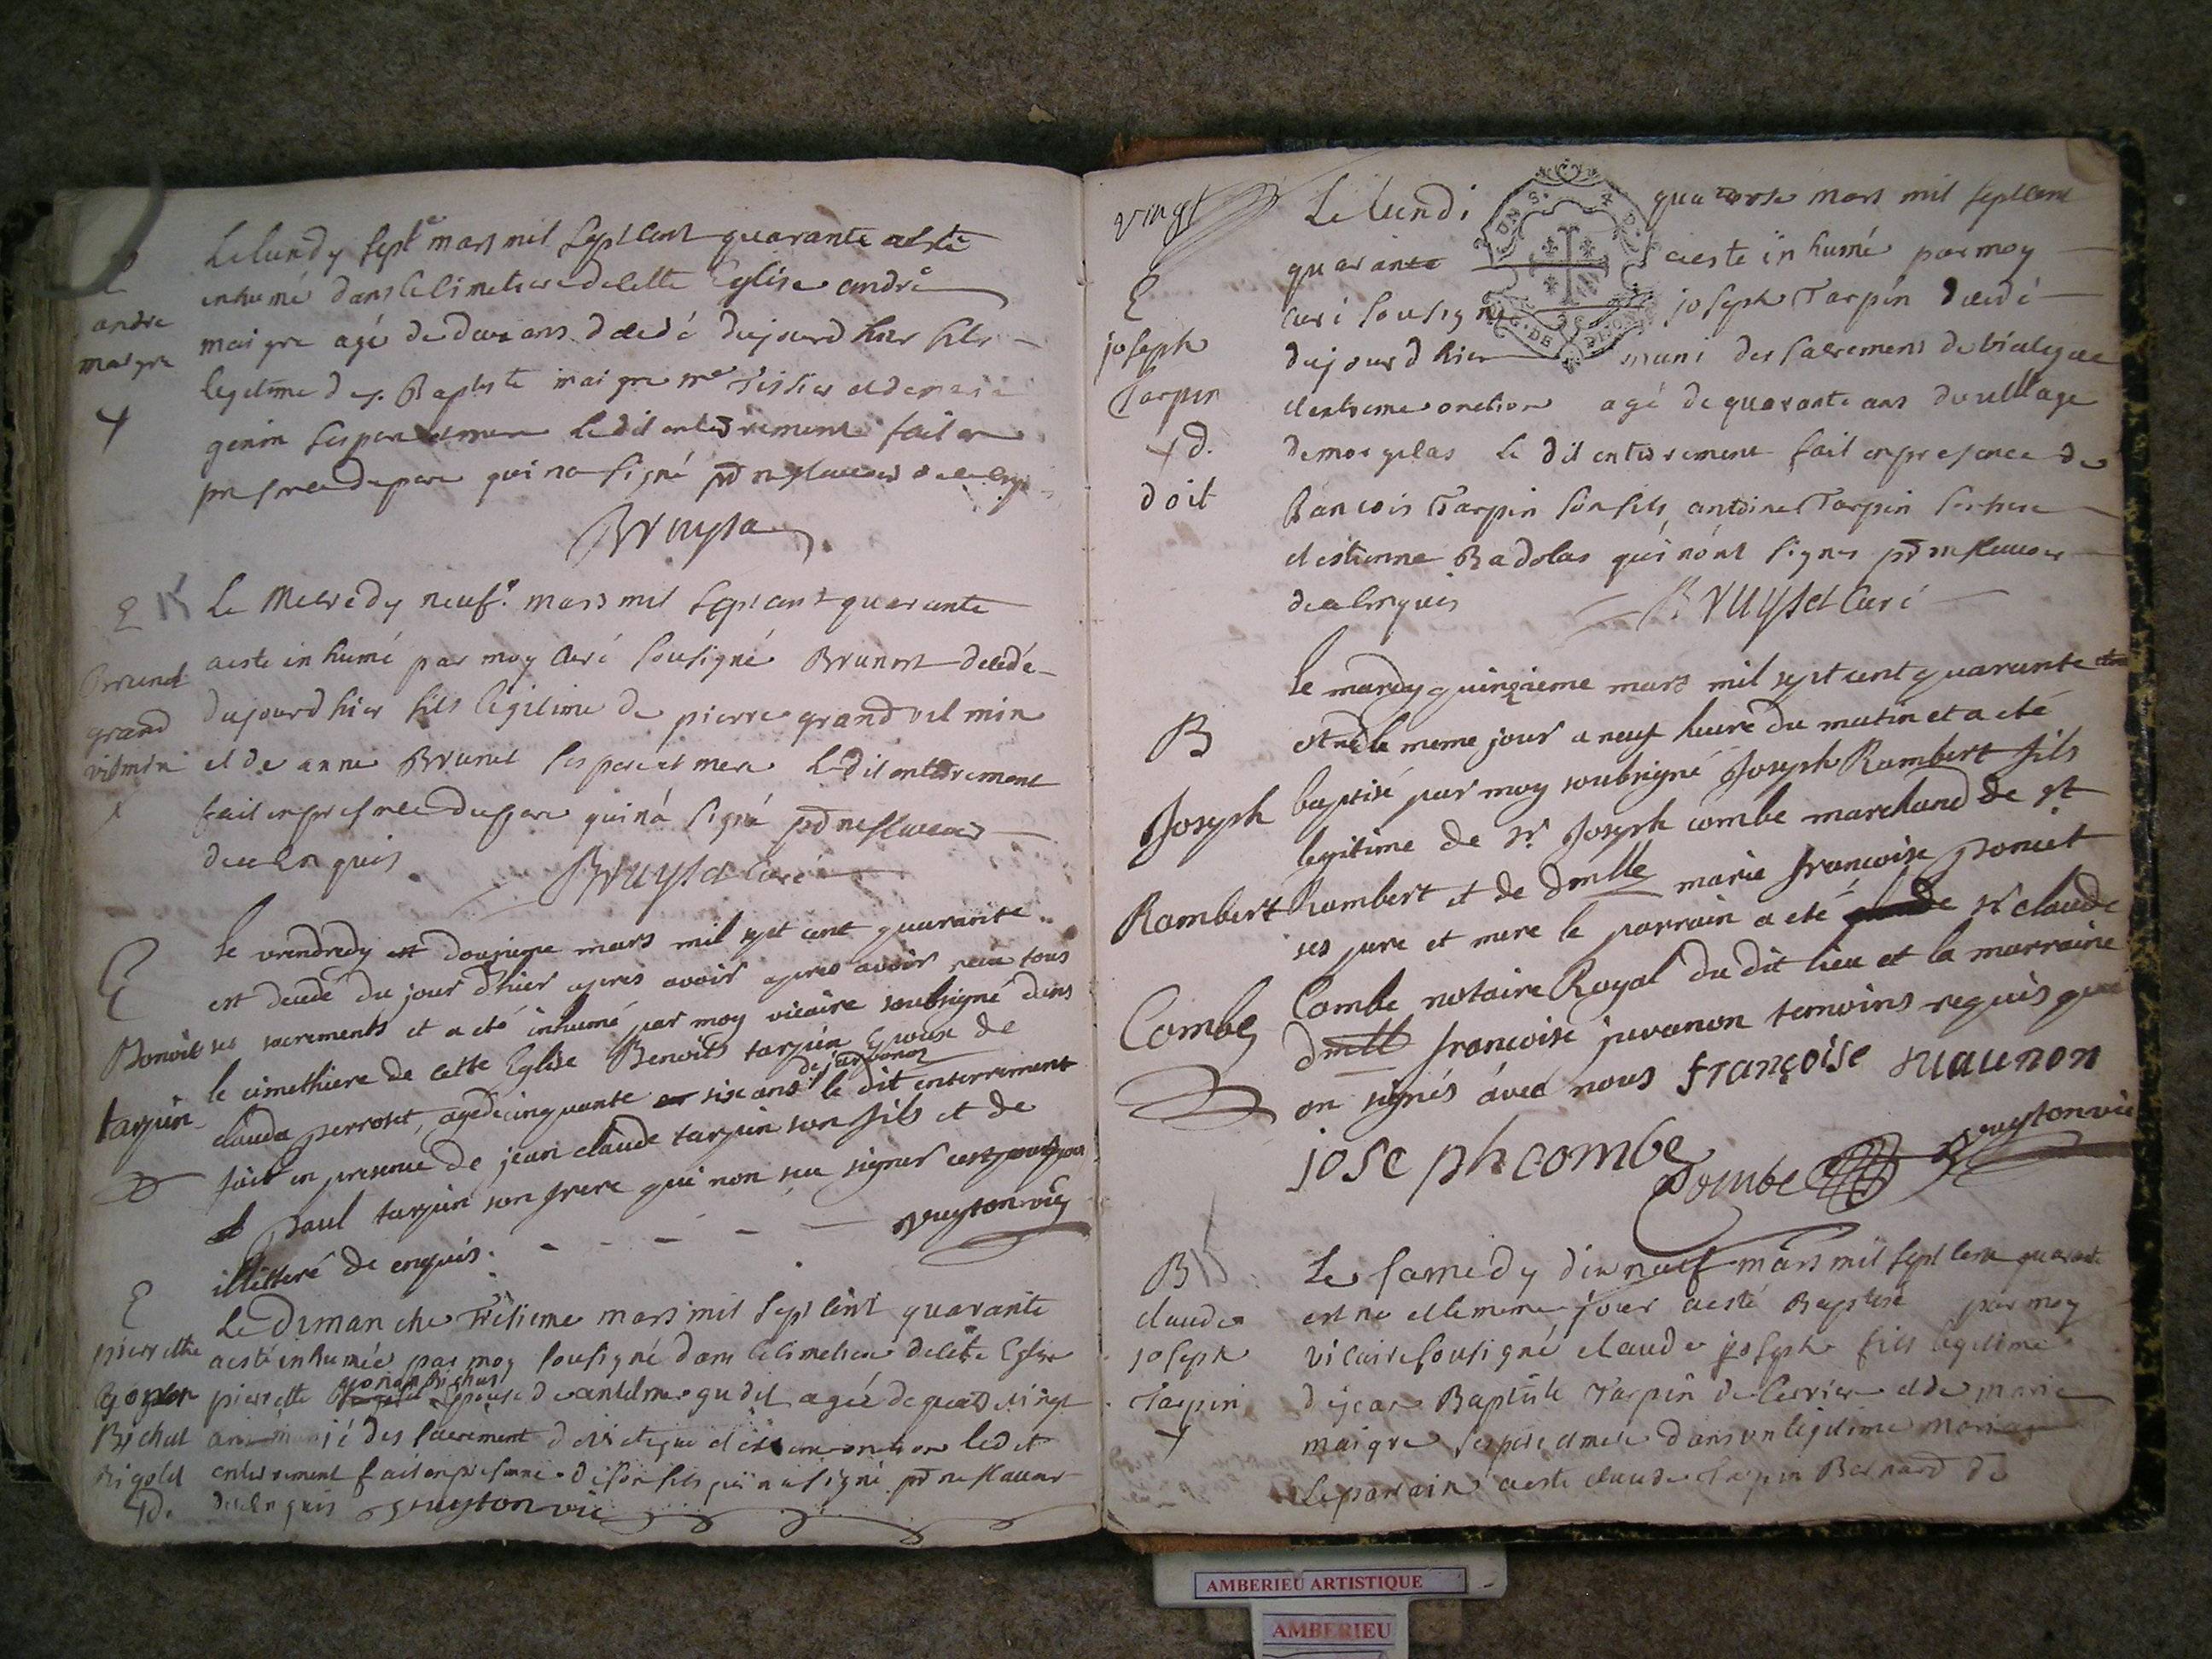 E
andre
maigre
Le lundy sept.e mars mil sept cent quarante a esté
inhumé dans le cimetiere de cette Eglise andré
maigre agé de deux ans decedé du jourd hier fils
legitime de j. Baptiste maigre me Tissier et de marie
genin ses pere et mere le dit enterrement fait en
presence du pere qui na signé pr ne scavoir de ce enquis
Bruyset
E
Brunet
grand
vilmin
Le Mecredy neuf.e mars mil sept cent quarante
a esté inhumé par moy curé sousigné Brunet decedé
du jourd hier fils legitime de pierre grand vilmin
et de anne Brunet ses pere et mere le dit enterrement
fait en presence du pere qui na signé pr ne scavoir
de ce enquis
Bruyset Curé
E
Benoite
tarpin
le vendredy est douzieme mars mil sept cent quarante
est decedé du jour d'hier apres avoir apres avoir recu tous
ses sacrements et a eté inhumé par moy vicaire soubsigné dans
le cimethiere de cette Eglise Benoite tarpin Epouse de
claude perroset, agée de cinquante et six ans le dit enterrement
fait en presence de jean claude tarpin son fils et de
paul tarpin son frere qui non seu signer
illitteré de enquis.
guyton vic
E
pierrette
gonon
Bichat
Rigolet
d.
Le Dimanche Tresieme mars mil sept cent quarante
a esté inhumée par moy sousigné dans le cimetiere de cette Eglise
gonon Bichat
pierrette Epouse de antelme agée de quatre vingt
ans des sacrement de viatique et extreme onction le dit
enterrement fait en presence de son fils qui na signé pr ne scavoir
de ce enquis guyton vic
vingt
E
joseph
Tarpin
d.
doit
Le lundi quatorse mars mil sept cent
quarante a esté inhumé par moy
curé sousigné joseph Tarpin decedé
du jourd hier muni des sacremens de viatique
et extreme onction agé de quarante ans du village
de morgelas le dit enterrement fait en presence de
francois Tarpin son fils, antoine Tarpin son frere
et estienne Badolas qui nont signer pr ne scavoir
de ce enquis
Bruyset Curé
B
Joseph
Rambert
Combe
le mardy quinzieme mars mil sept cent quarante
est né le meme jour a neuf heure du matin et a eté
baptisé par moy soubsigné Joseph Rambert fils
legitime de Sr Joseph combe marchand de St
Rambert et de dmlle marie francoise poncet
ses pere et mere le parrain a eté Sr claude
Combe notaire Royal du dit lieu et la marraine
dmlle francoise juvanon temoins requis qui
on signés avec nous françoise juuaunon
joseph combe
Combe guyton vic
B
claude
joseph
Tarpin
Le samedy dix neuf mars mil sept cent quarante
est né et le meme jour a esté Baptisé par moy
vicaire sousigné claude joseph fils legitime
de jean Baptiste Tarpin de Cerviere et de marie
maigre ses pere et mere dans un legitime mariage
Le parain a esté claude Tarpin Bernard de
AMBERIEU ARTISTIQUE
AMBERIEU